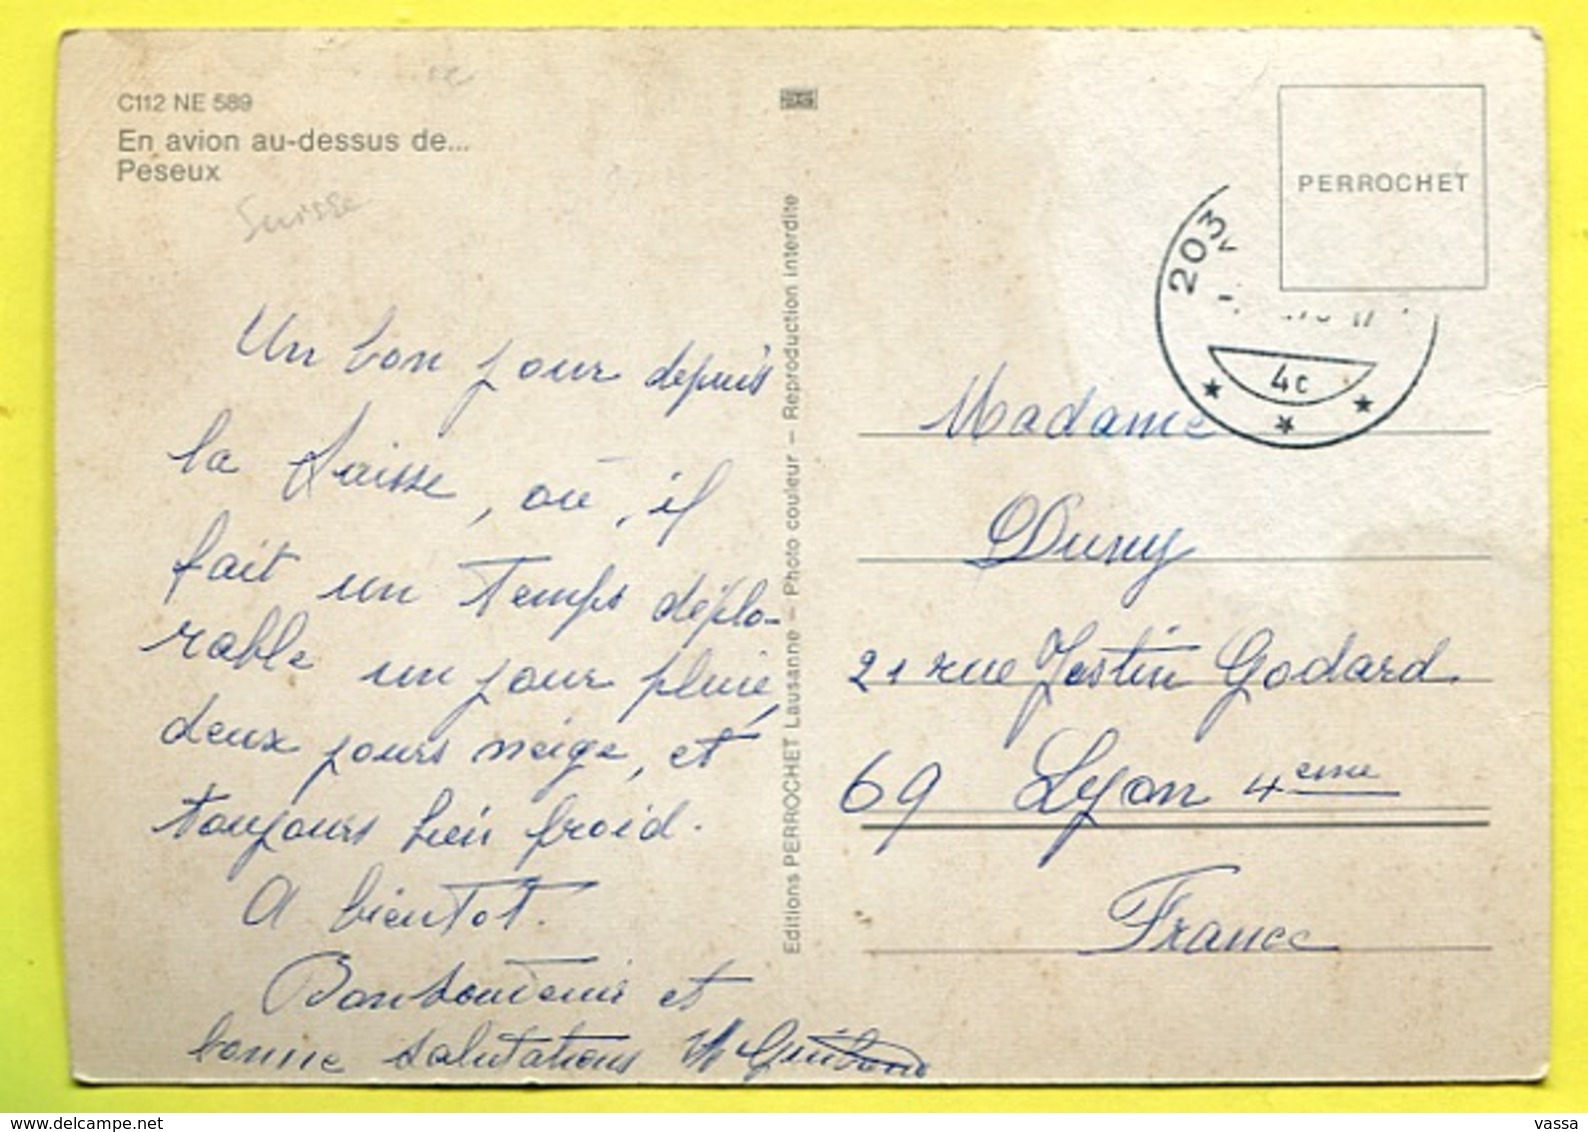 C112 NE 589
En avion au-dessus de...
Peseux
Suisse
Un bon jour depuis
la Suisse, où, il
fait un temps déplo-
rable un jour pluie,
deux jours neige, et
toujours bien froid.
A bientot.
Bon souvenir et
bonne salutations
Editions PERROCHET Lausanne – Photo couleur – Reproduction interdite
PERROCHET
203
4c
Madame
Duny
21 rue Jostin Godard.
69 Lyon 4eme
France
delcampe.net
vassa